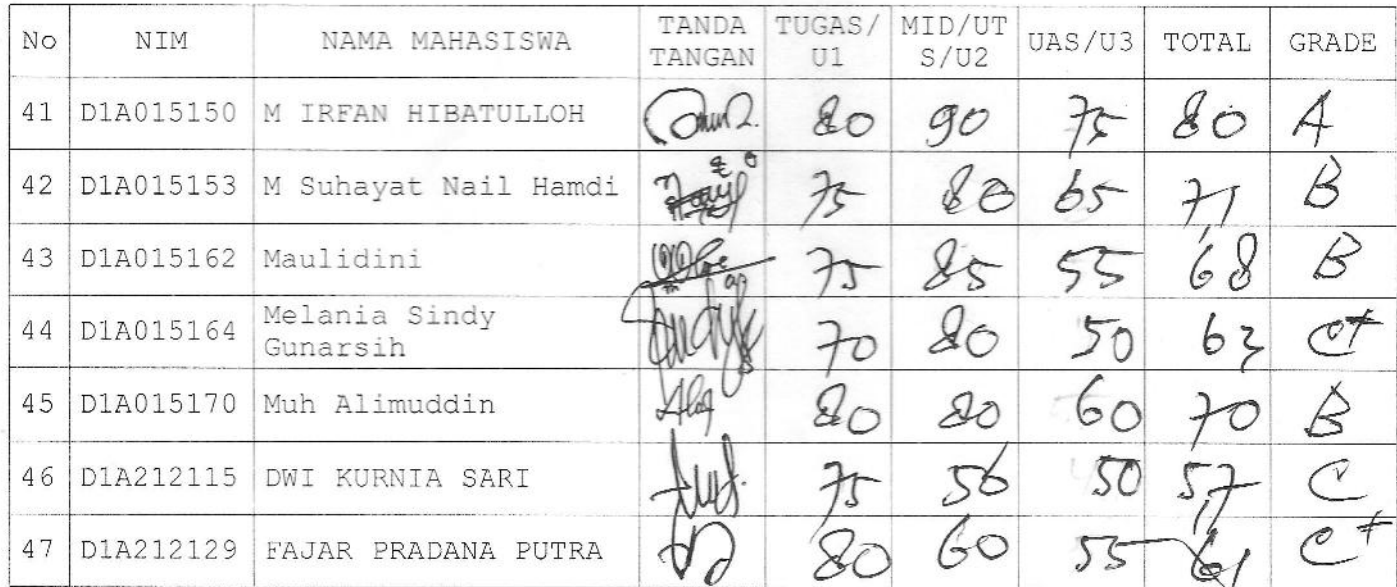 No NIM NAMA MAHASISWA TANDA TANGAN TUGAS/U1 MID/UTS/U2 UAS/U3 TOTAL GRADE
41 D1A015150 M IRFAN HIBATULLOH 80 90 75 80 A
42 D1A015153 M Suhayat Nail Hamdi 75 80 65 71 B
43 D1A015162 Maulidini 75 85 55 68 B
44 D1A015164 Melania Sindy Gunarsih 70 80 50 63 C+
45 D1A015170 Muh Alimuddin 80 80 60 70 B
46 D1A212115 DWI KURNIA SARI 75 50 57 C
47 D1A212129 FAJAR PRADANA PUTRA 80 60 55 61 C+